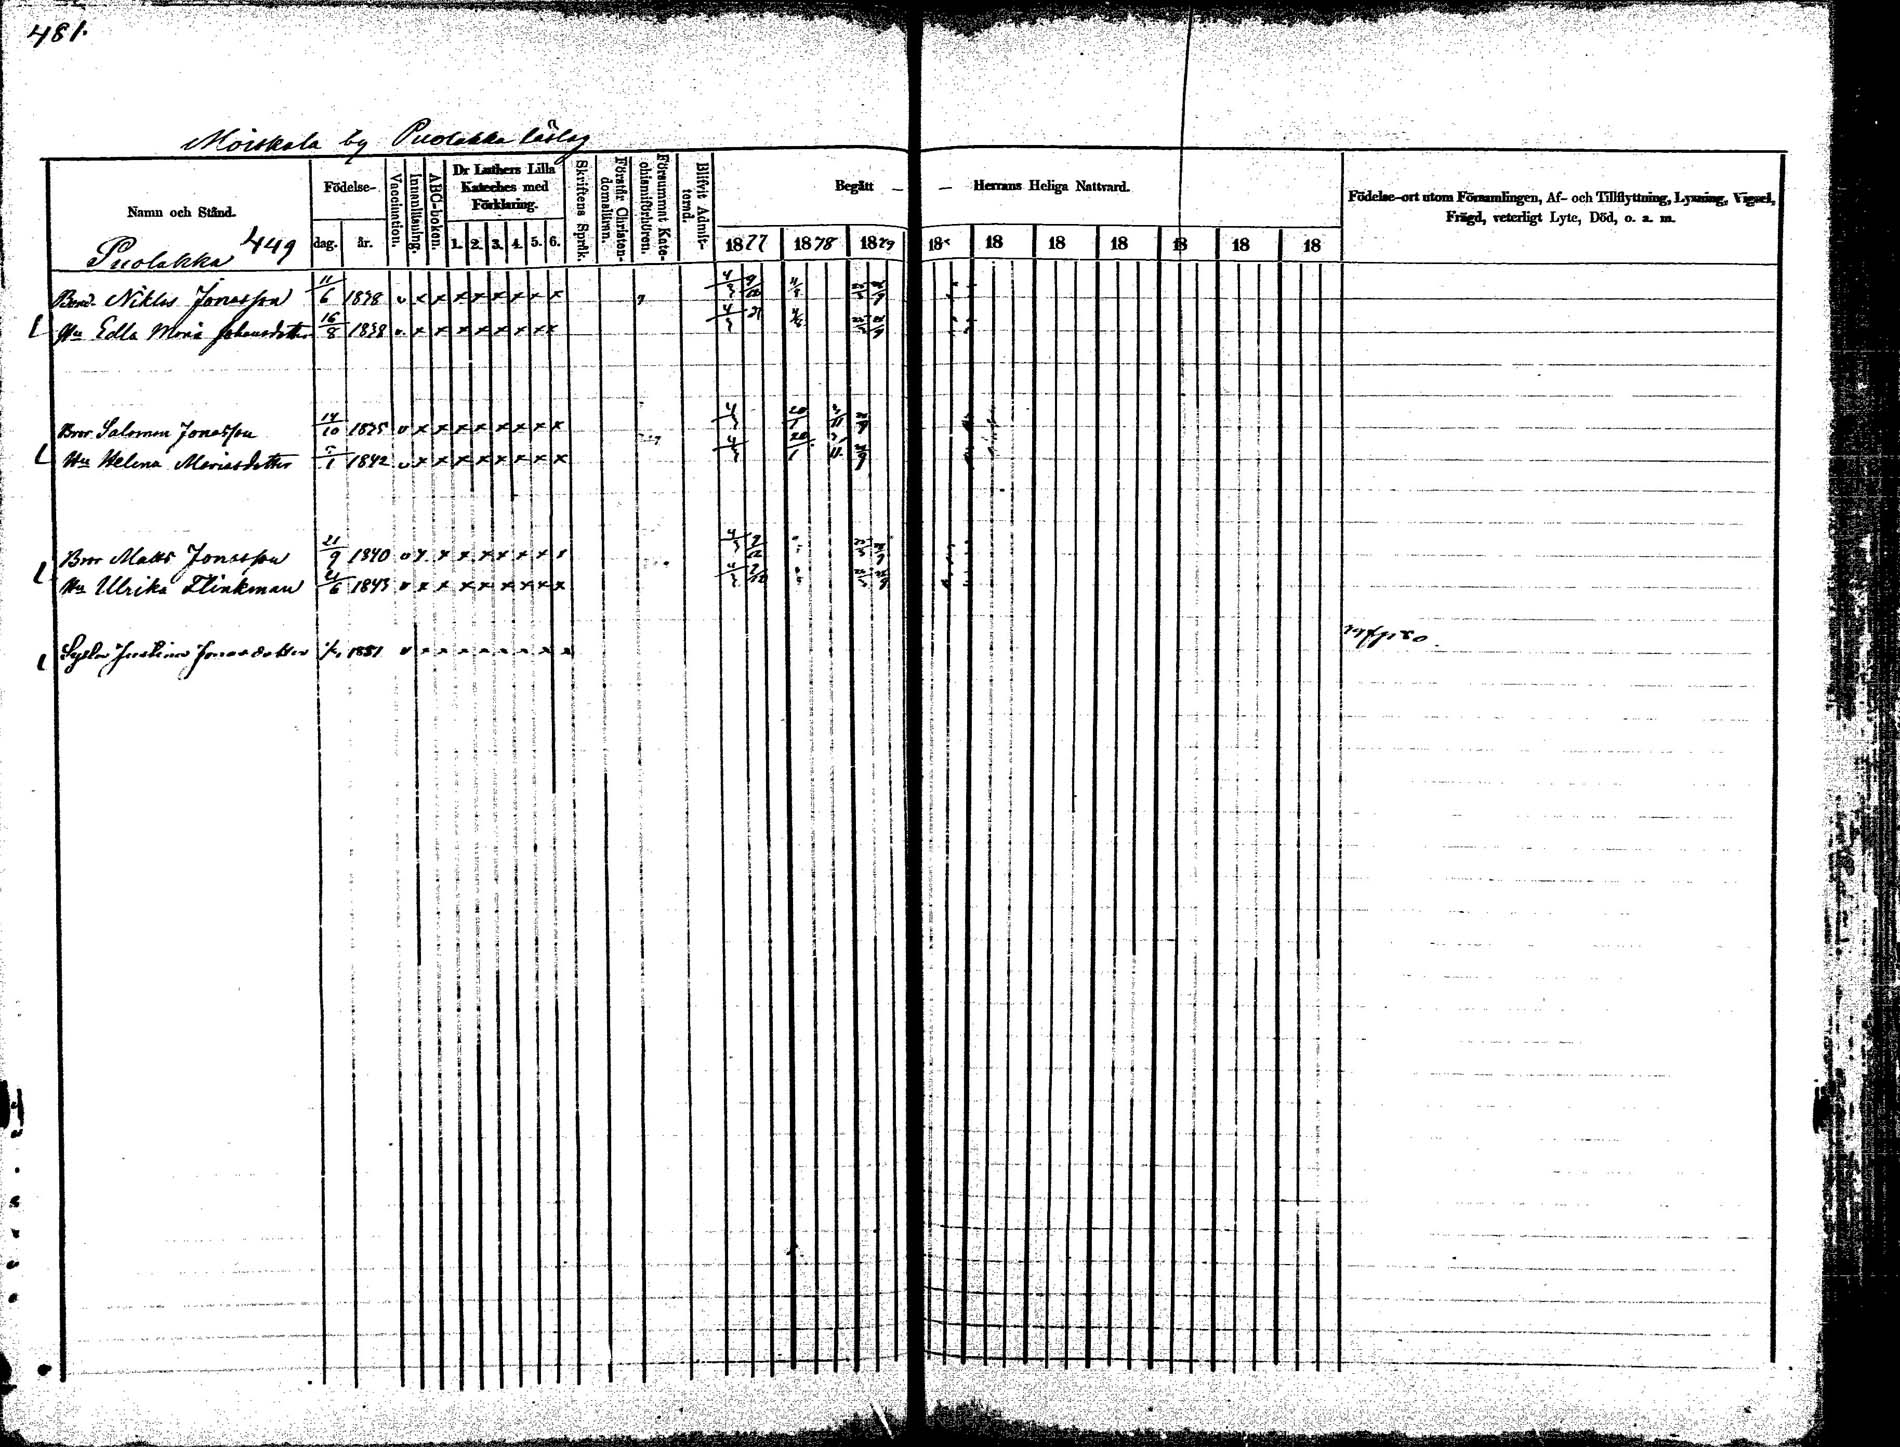 481.
Moiskala by Puolakka läslag
Namn och Stånd.
Födelse-
dag. år.
Vaccination.
Innanläsning.
ABC-boken.
Dr Luthers Lilla
Kateches med
Förklaring.
1. 2. 3. 4. 5. 6.
Skriftens Språk.
Förstår Christen-
domslären.
Försummat Kate-
chismiförhören.
Blifvit Admit-
terad.
Begått — — Herrans Heliga Nattvard.
1877 1878 1879 18 18 18 18 18 18 18
Födelse-ort utom Församlingen, Af- och Tillflyttning, Lysning, Vigsel,
Frägd, veterligt Lyte, Död, o. a. m.
Puolakka 449
Bond. Niklas Jonasson 11/6 1838 v x x x x x x x x
Hu Edla Maria Johansdotter 16/8 1838 v x x x x x x x x
Bror Salomon Jonasson 14/10 1835 v x x x x x x x x
Hu Helena Mariasdotter 1842 v x x x x x x x x
Bror Matts Jonasson 21/9 1840 v x x x x x x x x
Hu Ulrika Flinkman 21/6 1843 v x x x x x x x x
Syster Justina Jonasdotter 1851 v x x x x x x x x